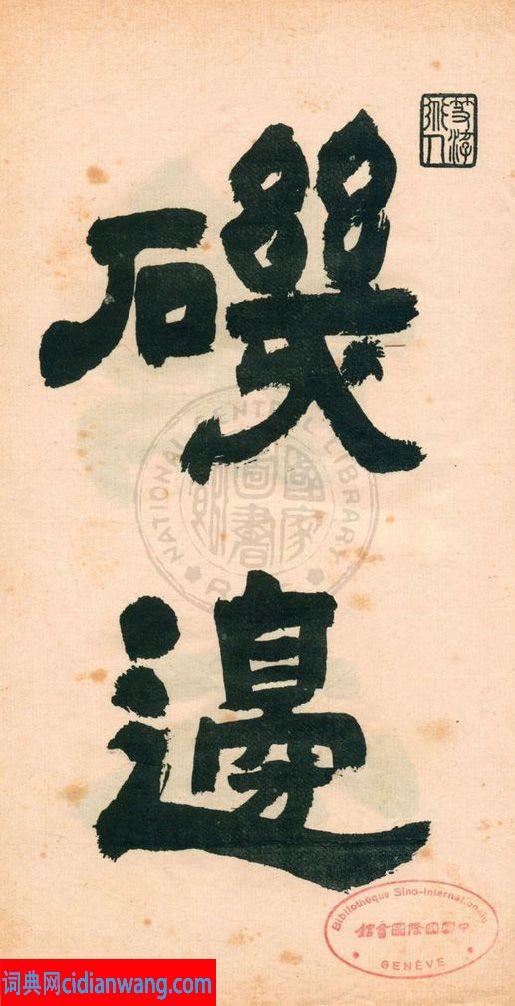 磯
邊
NATIONAL CENTRAL LIBRARY
國家圖書館
Bibliothèque Sino-Internationale
中國國際圖書館
GENÈVE
词典网cidianwang.com